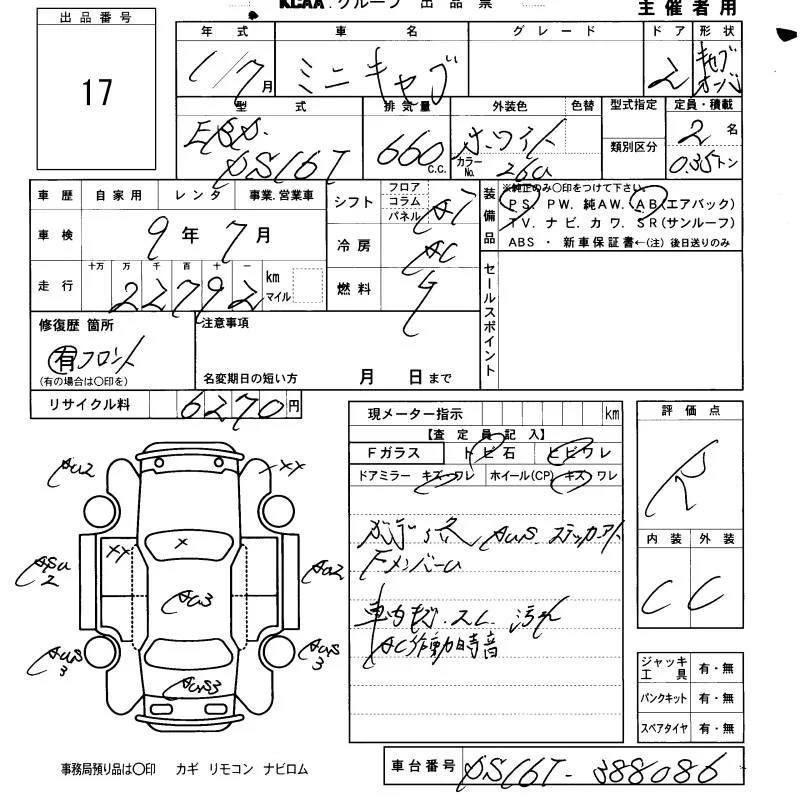 KCAA. グループ 出品票
主催者用
出品番号
17
年式 車名 グレード ドア 形状
1/7月 ミニキャブ 2 キャブオーバ
型式 排気量 外装色 色替 型式指定 定員・積載
EBD-DS16T 660c.c. ホワイト カラーNo. 26U 類別区分 2名 0.35トン
車歴 自家用 レンタ 事業.営業車
シフト フロア コラム パネル AT
装備品 ※純正のみ○印をつけて下さい。
PS. PW. 純AW. AB(エアバック)
TV. ナビ. カワ. SR(サンルーフ)
ABS ・ 新車保証書←(注) 後日送りのみ
車検 9年7月
冷房 AC
走行 十万 万 千 百 十 一 km マイル
22792
燃料
セールスポイント
修復歴 箇所
有 フロント
(有の場合は○印を)
注意事項
名変期日の短い方 月 日まで
リサイクル料 6270円
現メーター指示 km
【査定員記入】
Fガラス トビ石 ヒビワレ
ドアミラー キズ・ワレ ホイール(CP) キズ ワレ
AUS. ステッカーアト
FメンバーU
車内キズ.スレ 汚れ
AC作動時音
評価点
R
内装 外装
C C
ジャッキ工具 有・無
パンクキット 有・無
スペアタイヤ 有・無
AU2 XX
XX X
2 AU3 AU2
AUS3 AUS3
AUS3
事務局預り品は○印 カギ リモコン ナビロム
車台番号 DS16T-388086